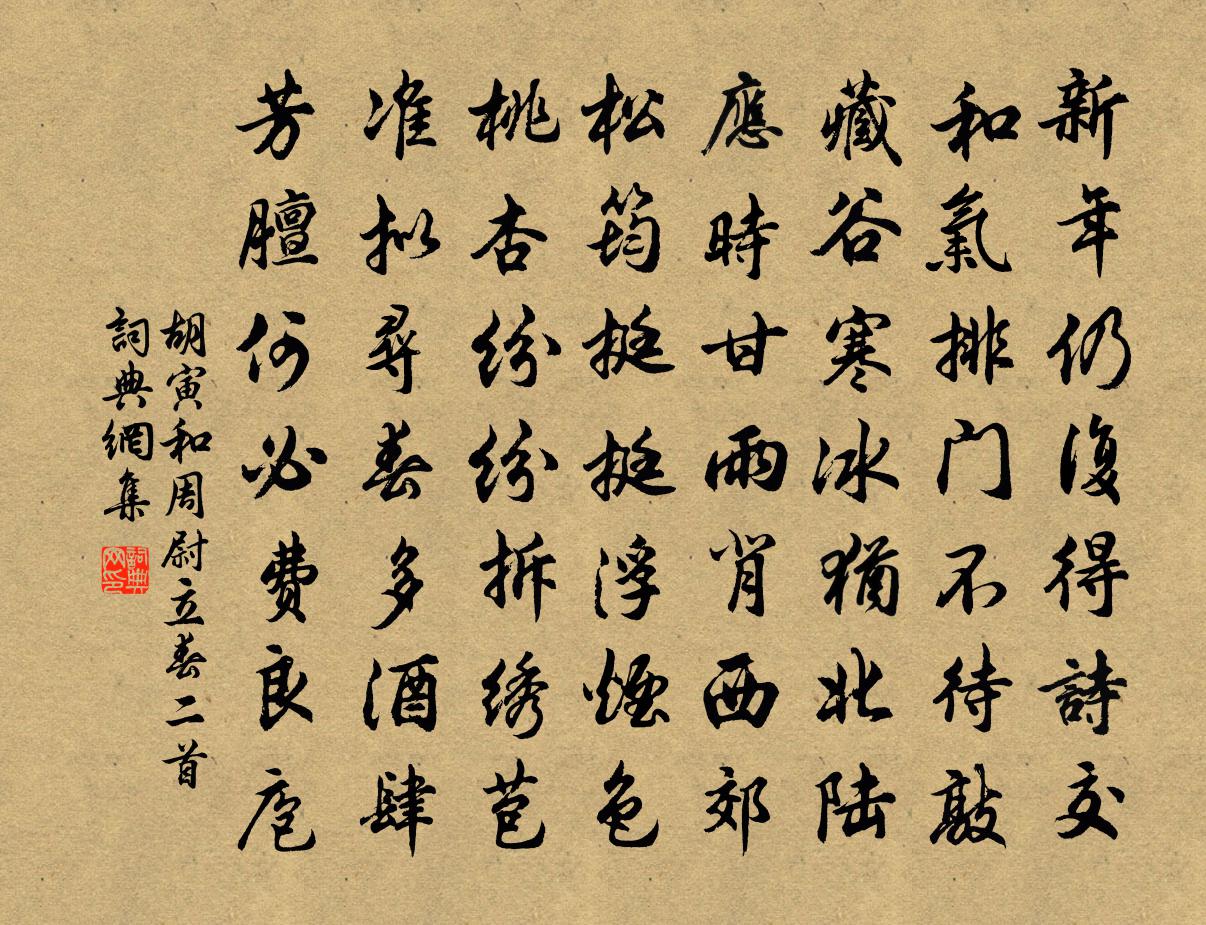 新年仍復得詩交
和氣排門不待敲
藏谷寒冰猶北陆
應時甘雨肖西郊
松筠挺挺浮煙色
桃杏紛紛拆绣苞
准拟尋春多酒肆
芳膻何必費良庖
胡寅和周尉立春二首
詞典網集
詞典网印